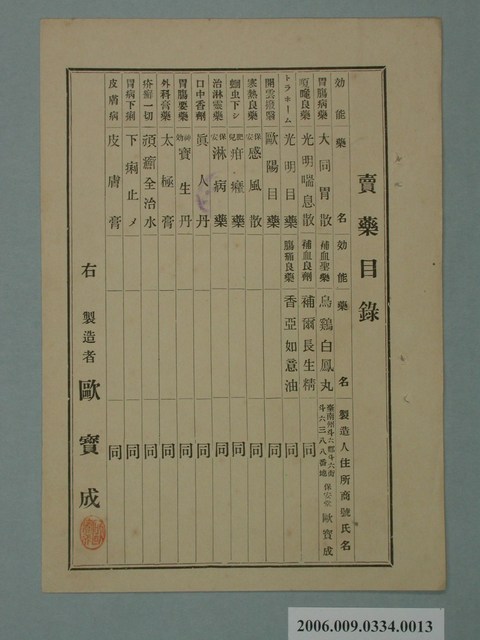 賣藥目錄
効能 藥名 効能 藥名 製造人住所商號氏名
胃腸病藥 大同胃散 補血聖藥 烏鷄白鳳丸 臺南州斗六郡斗六街斗六三八八番地 保安堂 歐寶成
咳嗽良藥 光明喘息散 補血良劑 補爾長生精 同
トラホーム 光明目藥 腸痛良藥 香亞如意油 同
開雲撥翳 歐陽目藥 同
寒熱良藥 保安感風散 同
蛔虫下シ 肥兒疳癪藥 同
治淋靈藥 保安淋病藥 同
口中香劑 眞人丹 同
胃腸要藥 神効寶生丹 同
外科膏藥 太極膏 同
疥癬一切 頑癬全治水 同
胃病下痢 下痢止メ 同
皮膚病 皮膚膏 同
右 製造者 歐寶成
2006.009.0334.0013